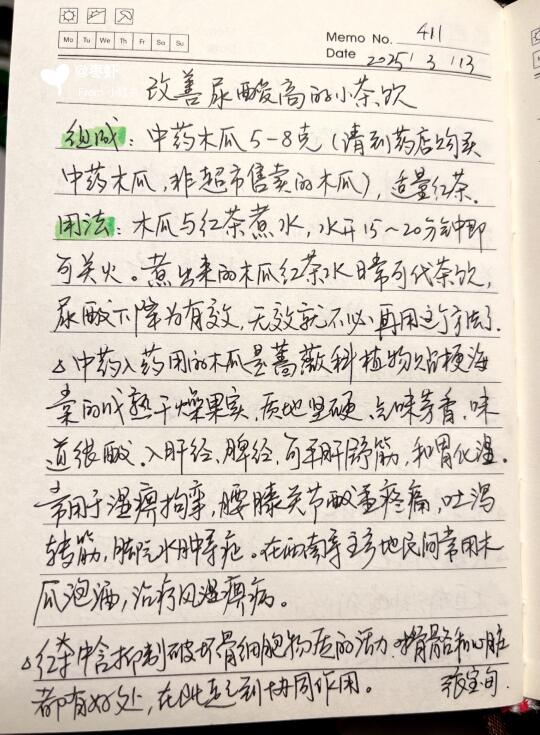 Memo No. 411
Mo Tu We Th Fr Sa Su
Date 2025/3/13
@枣虾
改善尿酸高的小茶饮
组成：中药木瓜5-8克（请到药店购买
中药木瓜，非超市售卖的木瓜），适量红茶.
用法：木瓜与红茶煮水，水开15～20分钟即
可关火。煮出来的木瓜红茶水日常可代茶饮，
尿酸下降为有效，无效就不必再用这个方法了.
△中药入药用的木瓜是蔷薇科植物贴梗海
棠的成熟干燥果实，质地坚硬，气味芳香，味
道很酸。入肝经、脾经，可平肝舒筋，和胃化湿。
常用于湿痹拘挛，腰膝关节酸重疼痛，吐泻
转筋，脚气水肿等症。在西南等多地民间常用木
瓜泡酒，治疗风湿痹病。
△红茶中含抑制破坏骨细胞物质的活力，对骨骼和心脏
都有好处，在此起到协同作用。 张宝旬